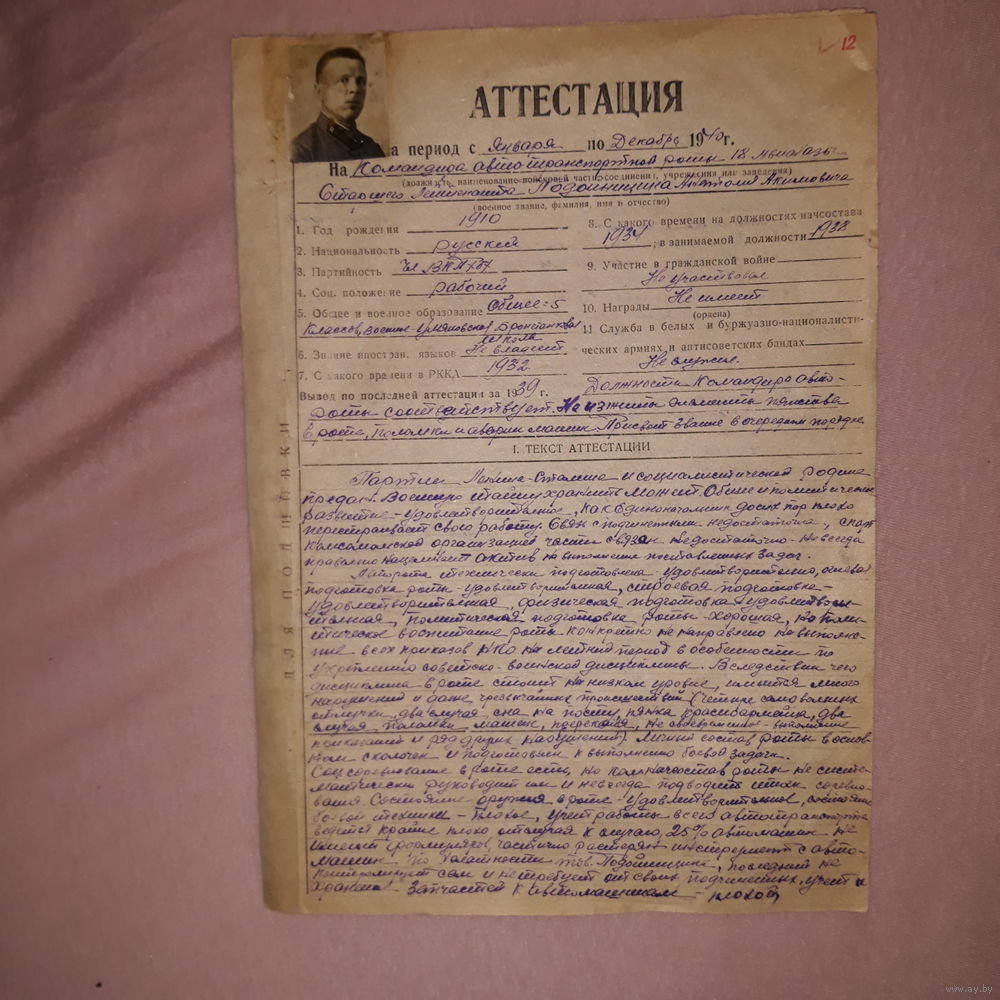 12
АТТЕСТАЦИЯ
а период с Января по Декабрь 1940 г.
На Командира автотранспортной роты 18 Авиабазы
(должность, наименование войсковой части, соединения, учреждения или заведения)
Старшего Лейтенанта Анатолия Акимовича
(военное звание, фамилия, имя и отчество)
1. Год рождения 1910
2. Национальность русский
3. Партийность Чл. ВКП/б/
4. Соц. положение рабочий
5. Общее и военное образование Общее: 5
классов, военное - Ульяновская Бронетанковая
школа
6. Знание иностран. языков Не владеет
7. С какого времени в РККА 1932
8. С какого времени на должностях начсостава
1934; в занимаемой должности 1938
9. Участие в гражданской войне
Не участвовал
10. Награды Не имеет
(ордена)
11 Служба в белых и буржуазно-националисти-
ческих армиях и антисоветских бандах
Не служил.
Вывод по последней аттестации за 1939 г. Должности Командира авто-
роты соответствует. Не изжиты элементы пьянства
в роте, поломки и аварии машин. Присвоить звание в очередном порядке.
I. ТЕКСТ АТТЕСТАЦИИ
Партии Ленина-Сталина и социалистической родине
предан. Военную тайну хранить может. Общее и политическое
развитие - удовлетворительное, как единоначальник до сих пор плохо
перестраивает свою работу. Связь с подчиненными недостаточна, с
комсомольской организацией части связан недостаточно - не всегда
правильно нацеливает актив на выполнение поставленных задач.
Авторота технически подготовлена - удовлетворительно, огневая
подготовка роты - удовлетворительная, строевая подготовка -
удовлетворительная, физическая подготовка - удовлетвори-
тельная, политическая подготовка роты - хорошая, но поли-
тическое воспитание роты конкретно не направлено на выполне-
ние всех приказов НКО на летний период в особенности по
укреплению советско-воинской дисциплины. Вследствии чего
дисциплина в роте стоит на низком уровне, имеется много
нарушений и даже чрезвычайных происшествий (четыре самовольных
отлучки, два случая сна на посту, пьянка красноармейца, два
случая поломки машин, не своевременное выполнение
приказаний и ряд других нарушений). Личный состав роты в основ-
ном сколочен и подготовлен к выполнению боевой задачи.
Соцсоревнование в роте есть, но командир роты не систе-
матически руководит им и не всегда подводит итоги соревно-
вания. Состояние оружия в роте - удовлетворительное, состояние
боевой техники - плохое, учет работы всего автотранспорта
ведется крайне плохо от случая к случаю, 25% автомашин не
имеют формуляров, частично растерян инструмент с авто-
машин по халатности тов. последний не
контролирует сам и не требует от своих подчиненных, учет и
хранение запчастей к автомашинам - плохой
ДЛЯ ПОДШИВКИ
www.ay.by